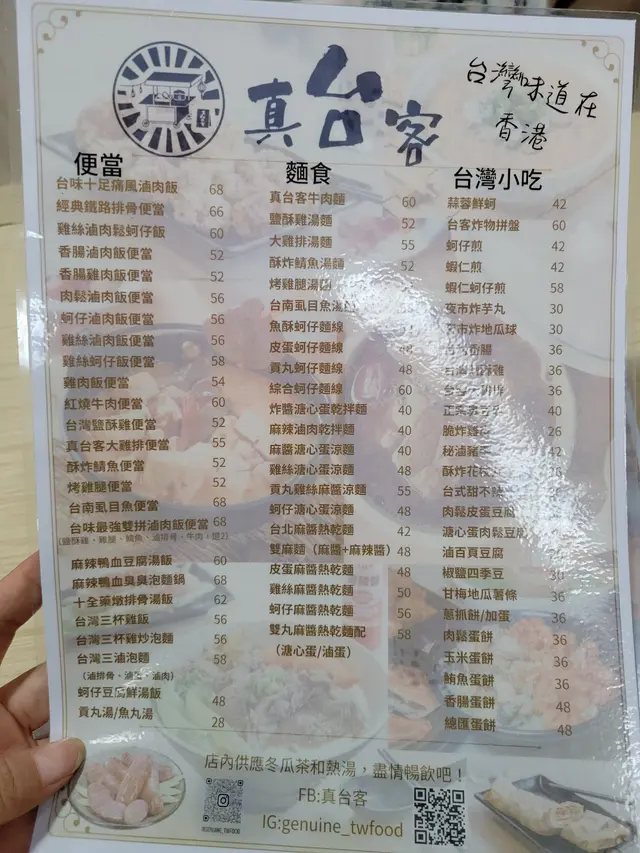 真台客
台灣味道在
香港
便當
台味十足痛風滷肉飯 68
經典鐵路排骨便當 66
雞絲滷肉鬆蚵仔飯 60
香腸滷肉飯便當 52
香腸雞肉飯便當 52
肉鬆滷肉飯便當 56
蚵仔滷肉飯便當 56
雞絲滷肉飯便當 56
雞絲蚵仔飯便當 58
雞肉飯便當 54
紅燒牛肉便當 60
台灣鹽酥雞便當 52
真台客大雞排便當 55
酥炸鯖魚便當 52
烤雞腿便當 52
台南虱目魚便當 68
台味最強雙拼滷肉飯便當 68
(鹽酥雞、雞腿、鯖魚、滷排骨、牛肉：選2)
麻辣鴨血豆腐湯飯 60
麻辣鴨血臭臭泡麵鍋 68
十全藥燉排骨湯飯 62
台灣三杯雞飯 56
台灣三杯雞炒泡麵 56
台灣三滷泡麵 58
（滷排骨、滷蛋、滷肉）
蚵仔豆腐鮮湯飯 48
貢丸湯/魚丸湯 28
麵食
真台客牛肉麵 60
鹽酥雞湯麵 52
大雞排湯麵 55
酥炸鯖魚湯麵 52
烤雞腿湯
台南虱目魚湯
魚酥蚵仔麵線
皮蛋蚵仔麵線
貢丸蚵仔麵線 48
綜合蚵仔麵線 60
炸醬溏心蛋乾拌麵 40
麻辣滷肉乾拌麵 40
麻醬溏心蛋涼麵 40
雞絲溏心蛋涼麵 48
貢丸雞絲麻醬涼麵 55
蚵仔溏心蛋涼麵 48
台北麻醬熱乾麵 42
雙麻麵（麻醬+麻辣醬）48
皮蛋麻醬熱乾麵 48
雞絲麻醬熱乾麵 50
蚵仔麻醬熱乾麵 56
雙丸麻醬熱乾麵配 58
（溏心蛋/滷蛋）
台灣小吃
蒜蓉鮮蚵 42
台客炸物拼盤 60
蚵仔煎 42
蝦仁煎 42
蝦仁蚵仔煎 58
夜市炸芋丸 30
夜市炸地瓜球 30
香腸 36
36
36
40
脆炸雞 26
秘滷豬
酥炸花枝
台式甜不辣
肉鬆皮蛋豆腐
溏心蛋肉鬆豆腐
滷百頁豆腐
椒鹽四季豆 30
甘梅地瓜薯條 36
蔥抓餅/加蛋
肉鬆蛋餅 36
玉米蛋餅 36
鮪魚蛋餅 36
香腸蛋餅 48
總匯蛋餅 48
店內供應冬瓜茶和熱湯，盡情暢飲吧！
FB:真台客
IG:genuine_twfood
@GENUINE_TWFOOD